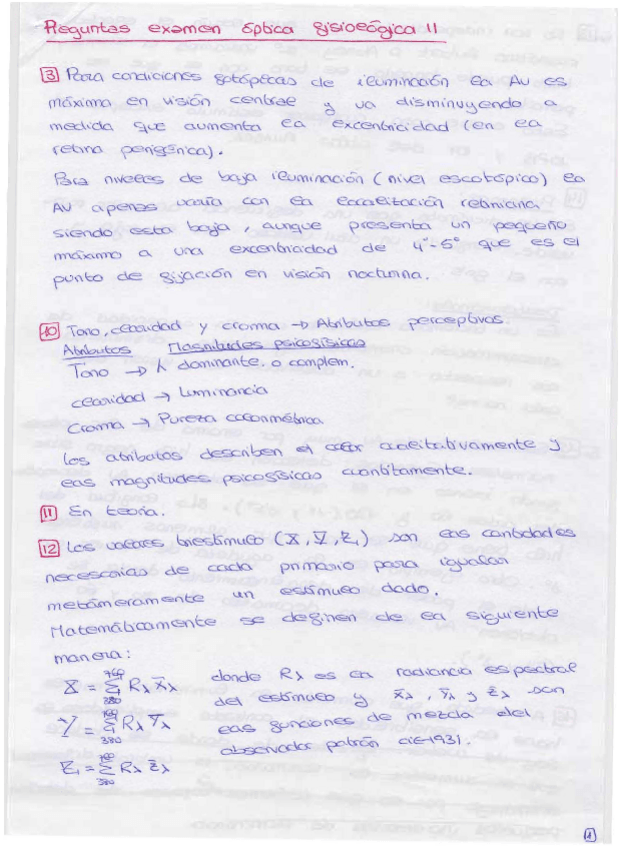 Preguntas examen óptica fisiológica II
3 Para condiciones fotópicas de iluminación la AV es
máxima en visión central y va disminuyendo a
medida que aumenta la excentricidad (en la
retina periférica).
Para niveles de baja iluminación (nivel escotópico) la
AV apenas varía con la localización retiniana,
siendo esta baja, aunque presenta un pequeño
máximo a una excentricidad de 4°-5° que es el
punto de fijación en visión nocturna.
10 Tono, claridad y croma → Atributos perceptivos.
Atributos Magnitudes psicofísicas
Tono → λ dominante o complem.
claridad → Luminancia
Croma → Pureza colorimétrica
Los atributos describen el color cualitativamente y
las magnitudes psicofísicas cuantitamente.
11 En teoría.
12 Los valores triestímulo (X, Y, Z) son las cantidades
necesarias de cada primario para igualar
metaméramente un estímulo dado.
Matemáticamente se definen de la siguiente
manera:
X = 760 Σ 380 Rλ x̄λ donde Rλ es la radiancia espectral
del estímulo y x̄λ, ȳλ y z̄λ son
Y = 760 Σ 380 Rλ ȳλ las funciones de mezcla del
observador patrón CIE-1931.
Z = 760 Σ 380 Rλ z̄λ
1